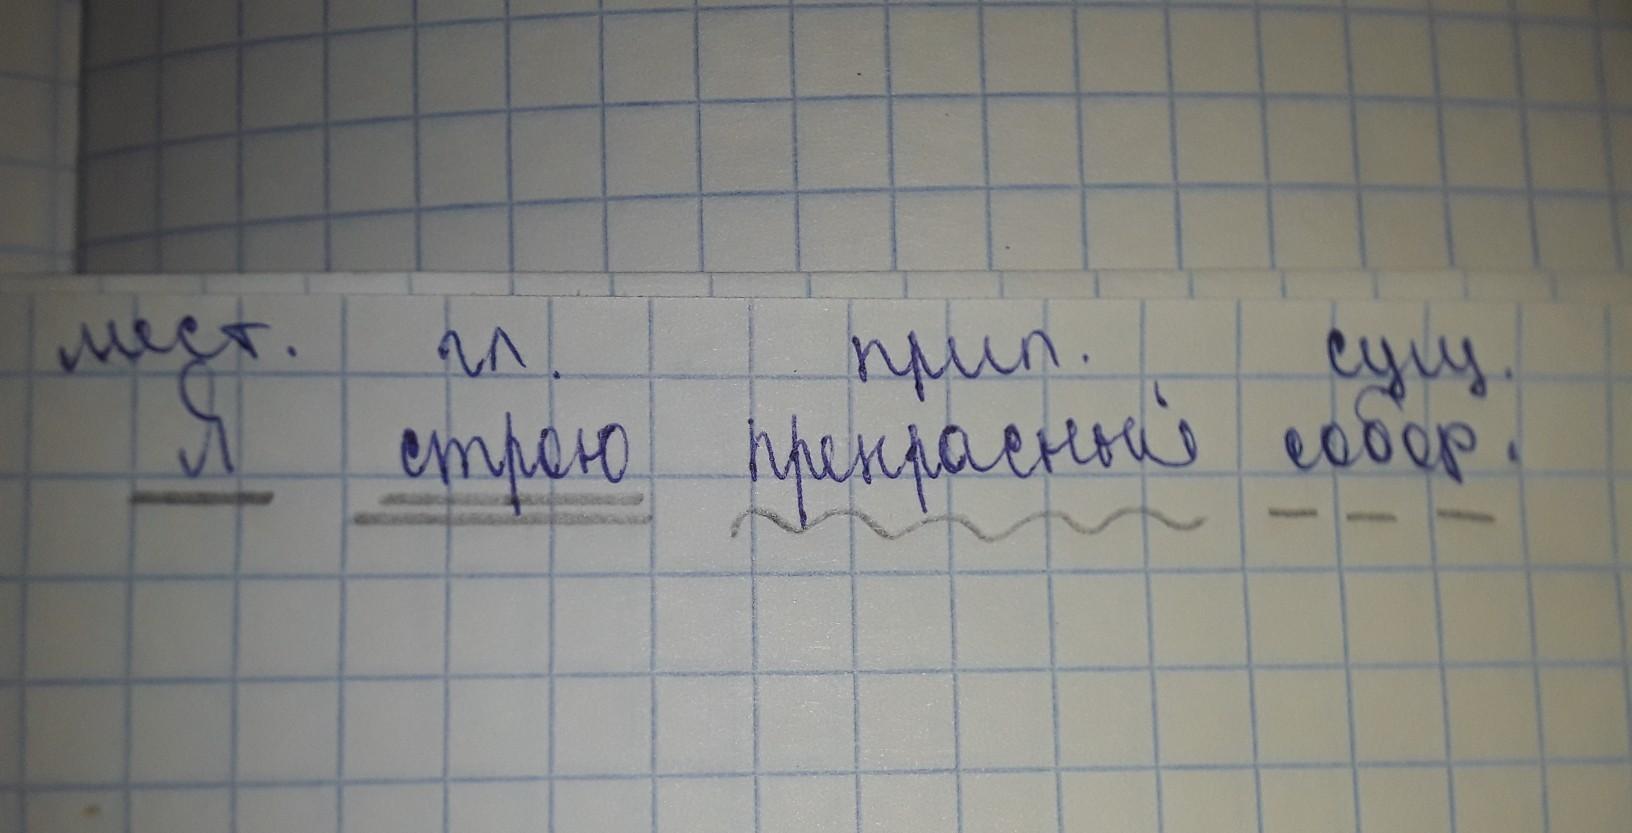 мест. гл. прил. сущ.
Я строю прекрасный собор.